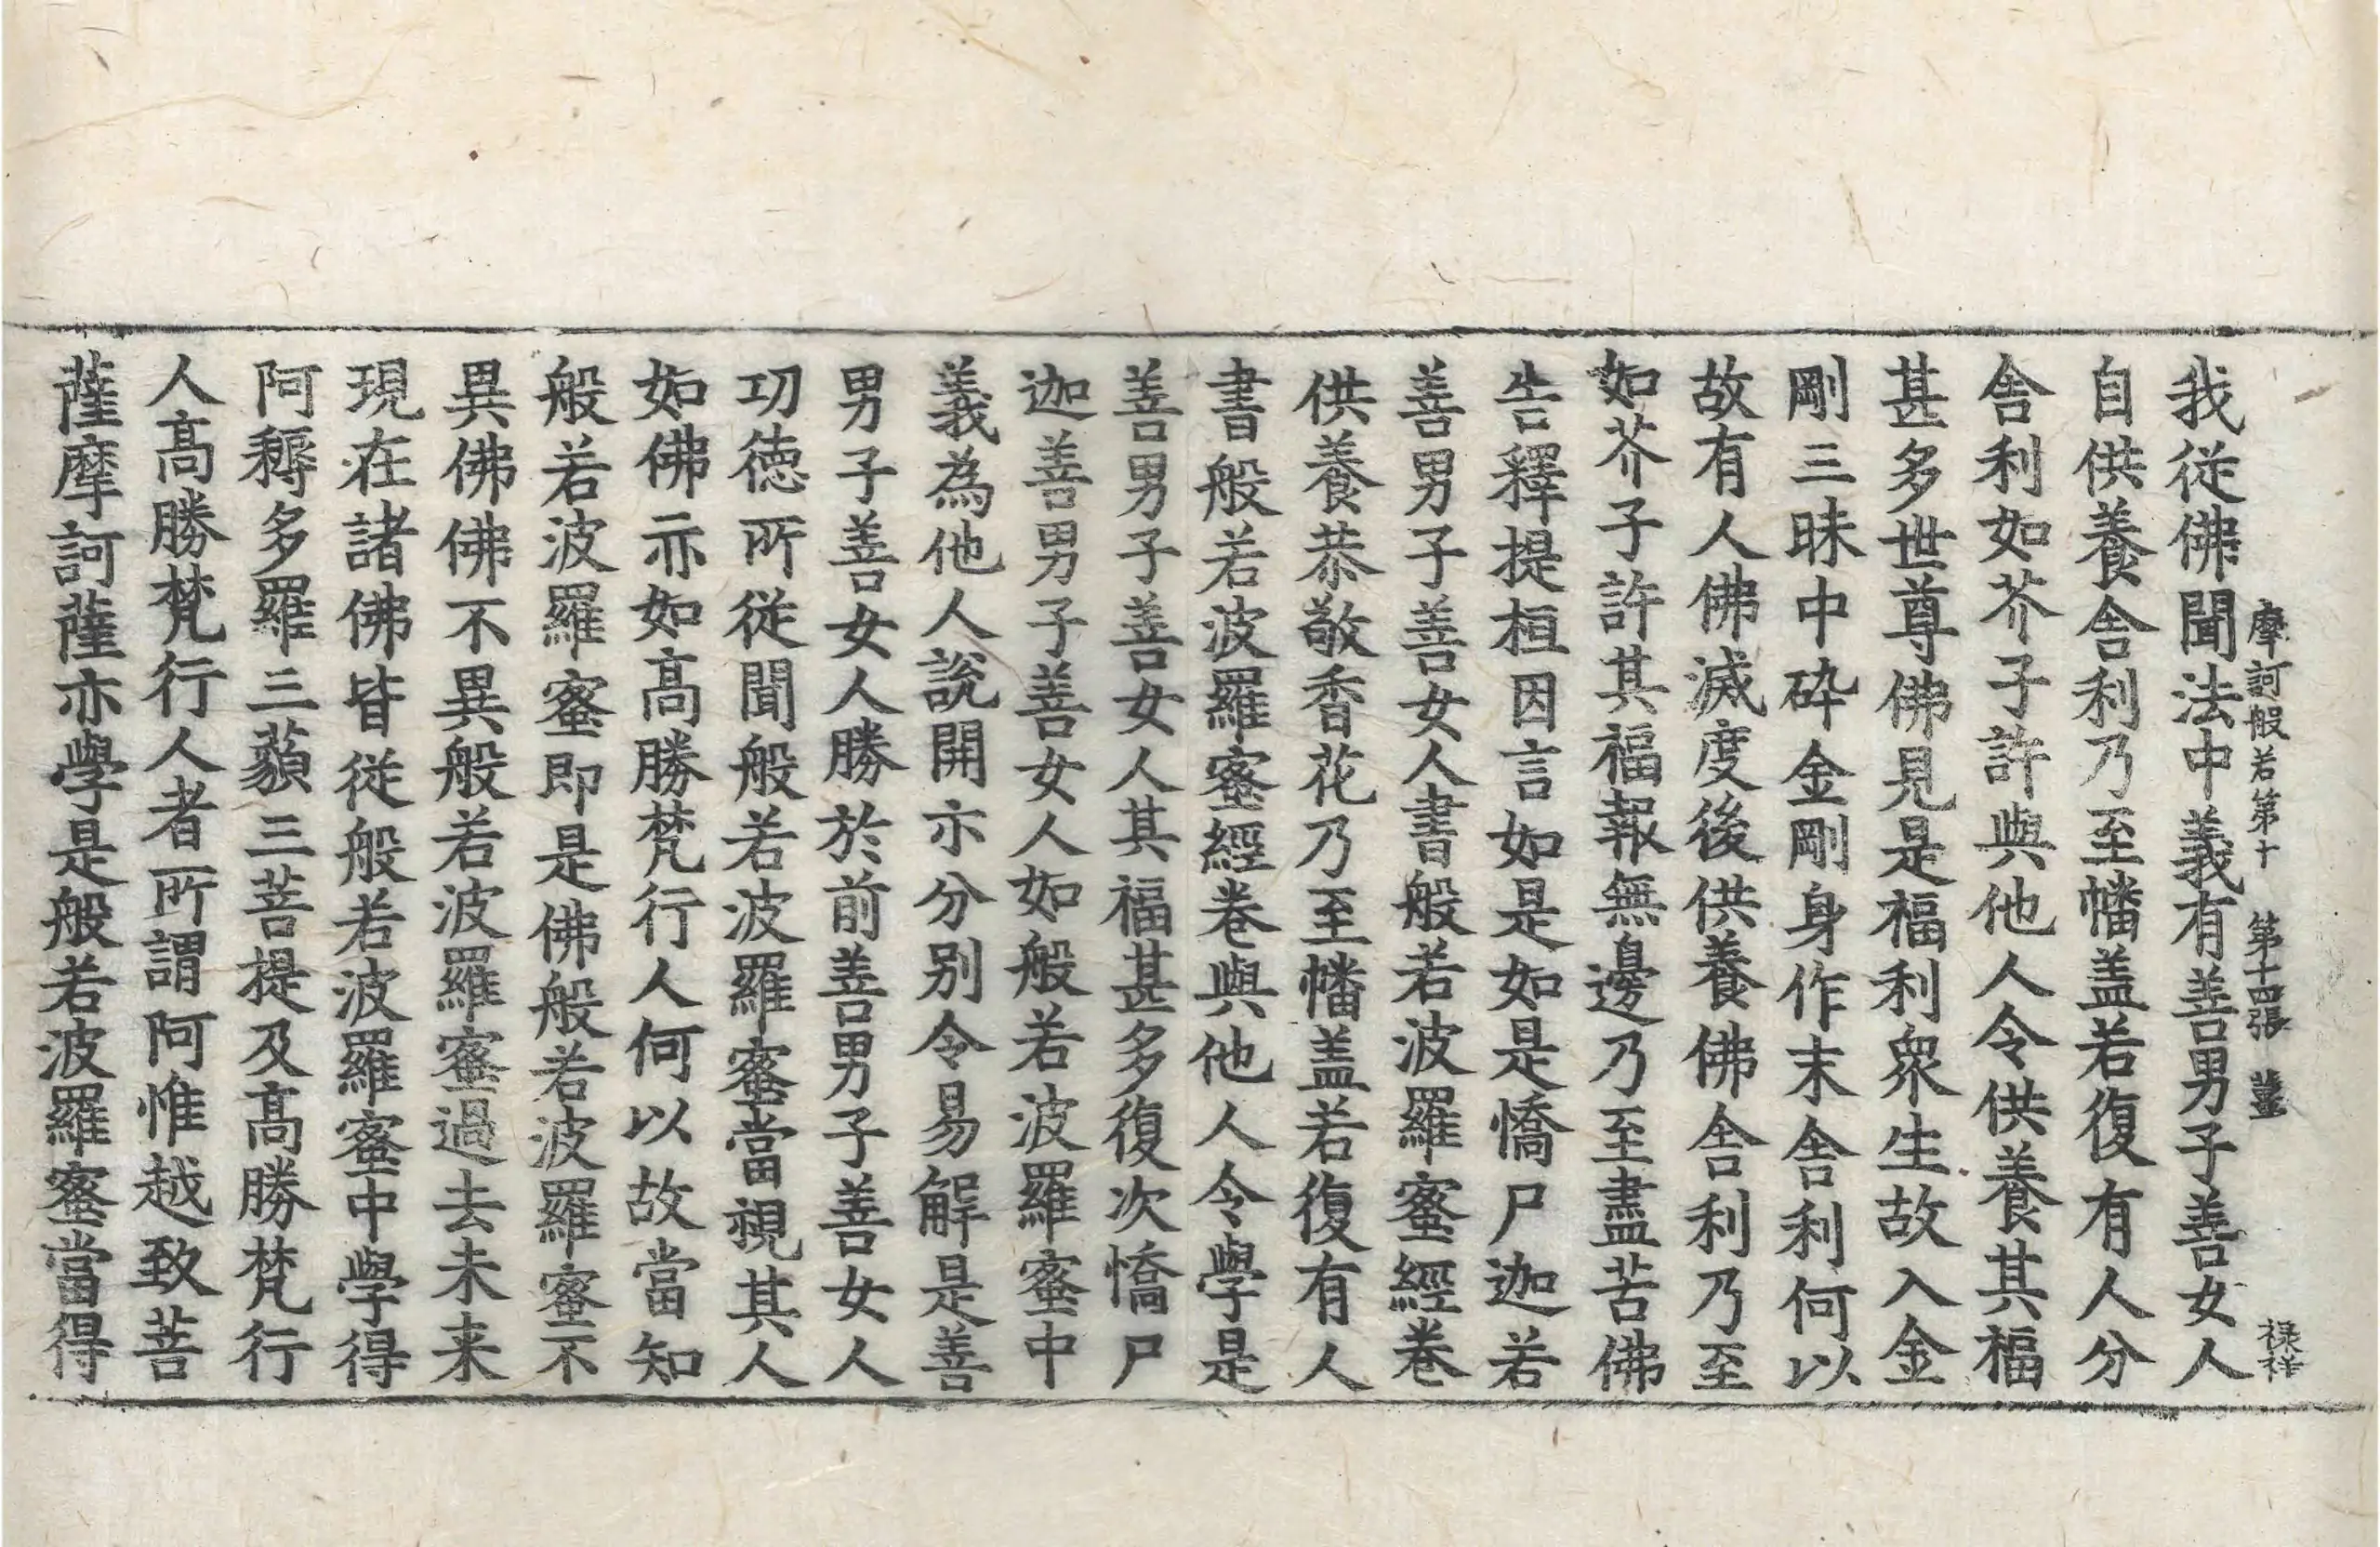 摩訶般若第十　第十四張　薑　祿祥
我從佛聞法中義有善男子善女人
自供養舍利乃至幡盖若復有人分
舍利如芥子許與他人令供養其福
甚多世尊佛見是福利衆生故入金
剛三昧中碎金剛身作末舍利何以
故有人佛滅度後供養佛舍利乃至
如芥子許其福報無邊乃至盡苦佛
告釋提桓因言如是如是憍尸迦若
善男子善女人書般若波羅蜜經卷
供養恭敬香花乃至幡盖若復有人
書般若波羅蜜經卷與他人令學是
善男子善女人其福甚多復次憍尸
迦善男子善女人如般若波羅蜜中
義為他人說開亦分別令易解是善
男子善女人勝於前善男子善女人
功德所從聞般若波羅蜜當視其人
如佛亦如高勝梵行人何以故當知
般若波羅蜜即是佛般若波羅蜜不
異佛佛不異般若波羅蜜過去未来
現在諸佛皆從般若波羅蜜中學得
阿耨多羅三藐三菩提及高勝梵行
人高勝梵行人者所謂阿惟越致菩
薩摩訶薩亦學是般若波羅蜜當得